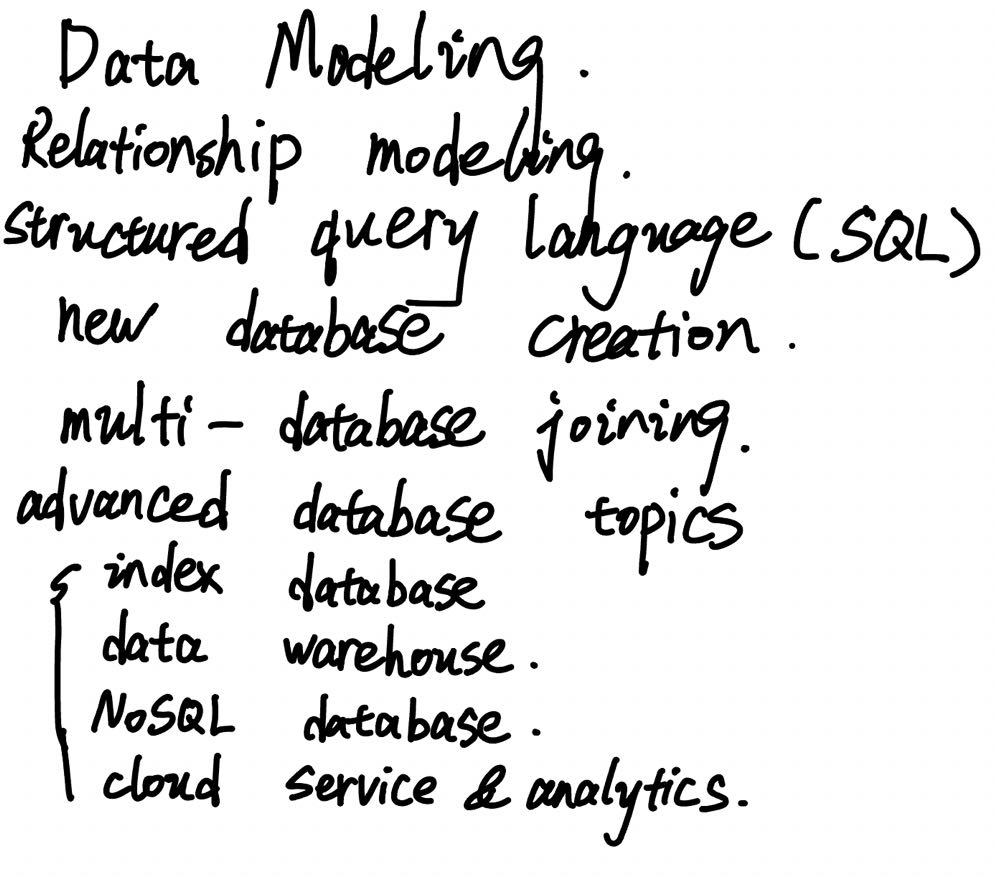 Data Modeling.
Relationship modeling.
structured query language (SQL)
new database creation.
multi-database joining.
advanced database topics
index database
data warehouse.
NoSQL database.
cloud service & analytics.